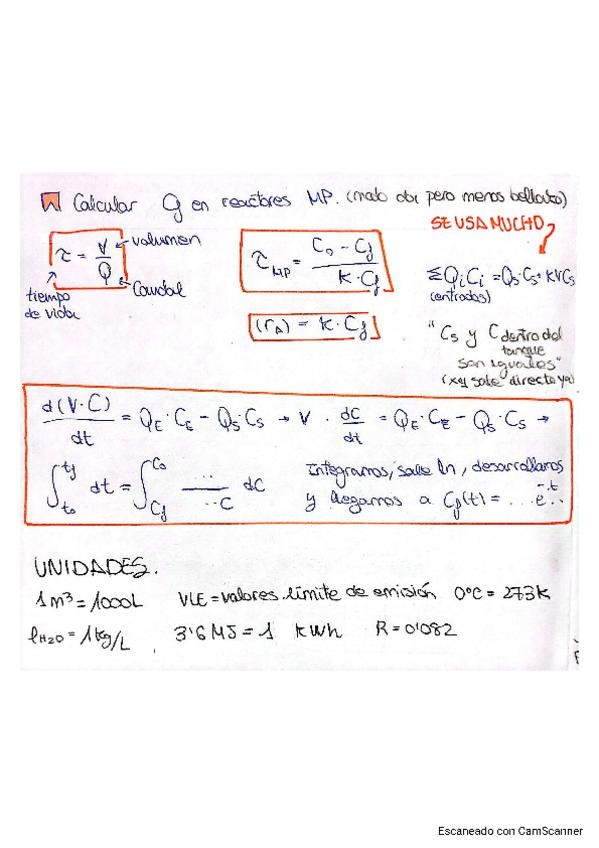 Calcular Cf en reactores MP. (modo obi pero menos bellaco)
SE USA MUCHO
τ = V/Q
volumen
Caudal
tiempo de vida
τMP = (C0 - Cf) / (K · Cf)
(rA) = K · Cf
ΣQiCi = Qs·Cs + KVCs
(entradas)
"Cs y C dentro del
tanque
son iguales"
sale directo ya)
d(V·C)/dt = QE·CE - QS·CS → V · dC/dt = QE·CE - QS·CS →
∫t0^tf dt = ∫Cf^C0 .../...C dC
Integramos, sale ln, desarrollamos
y llegamos a Cf(t) = ...e^-t..
UNIDADES.
1m³ = 1000L
VLE = valores límite de emisión
0°C = 273K
ρH2O = 1kg/L
3'6 MJ = 1 KWh
R = 0'082
Escaneado con CamScanner